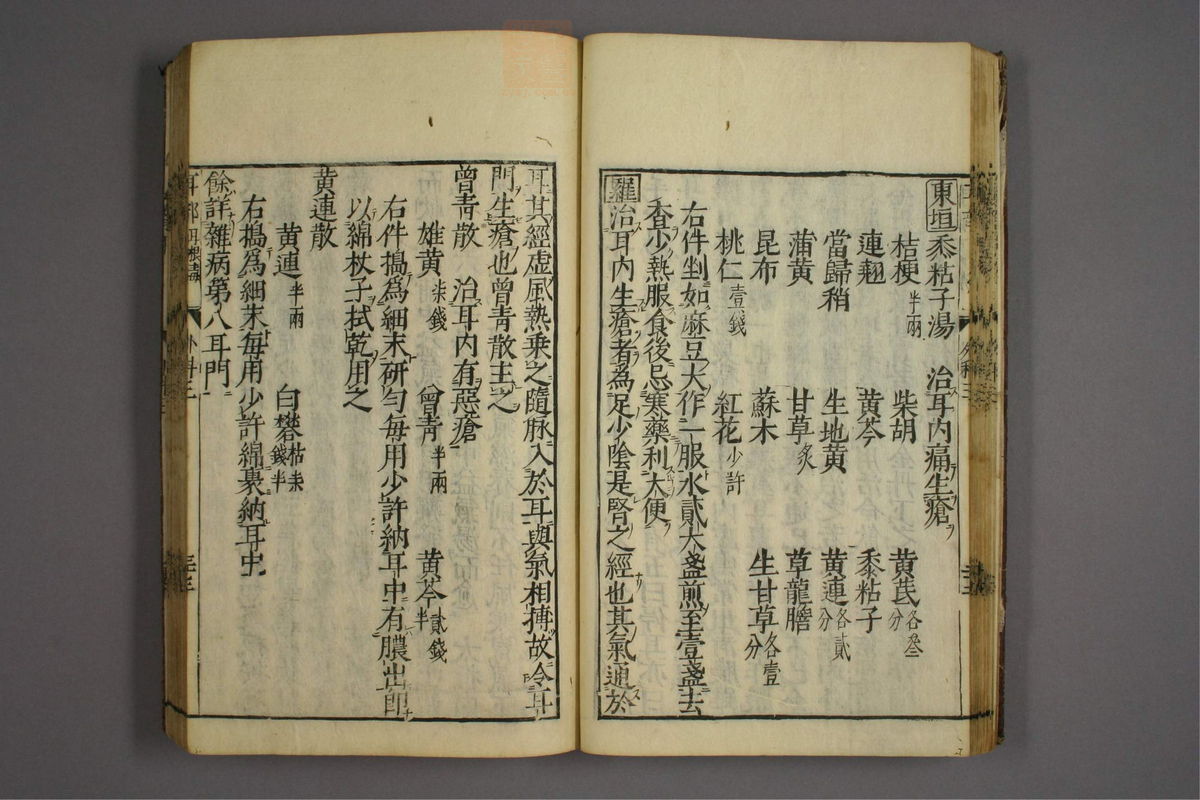 東垣黍粘子湯　治耳内痛生瘡
桔梗半兩　柴胡　黄芪各叄分
連翹　黄芩　黍粘子
當歸稍　生地黄　黄連各貳分
蒲黄　甘草炙　草龍膽
昆布　蘇木　生甘草各壹分
桃仁壹錢　紅花少許
右件剉如麻豆大作一服水貳大盞煎至壹盞去
柤少熱服食後忌寒藥利大便
羅治耳内生瘡者為足少陰是腎之經也其氣通於
耳其經虛風熱乗之隨脉入於耳與氣相搏故令耳
門生瘡也曾青散主之
曾青散　治耳内有惡瘡
雄黄柒錢　曾青半兩　黄芩貳錢半
右件搗為細末研勻毎用少許納耳中有膿出即
以綿杖子拭乾用之
黄連散
黄連半兩　白礬枯柒錢半
右搗為細末毎用少許綿裹納耳中
餘詳雜病第八耳門